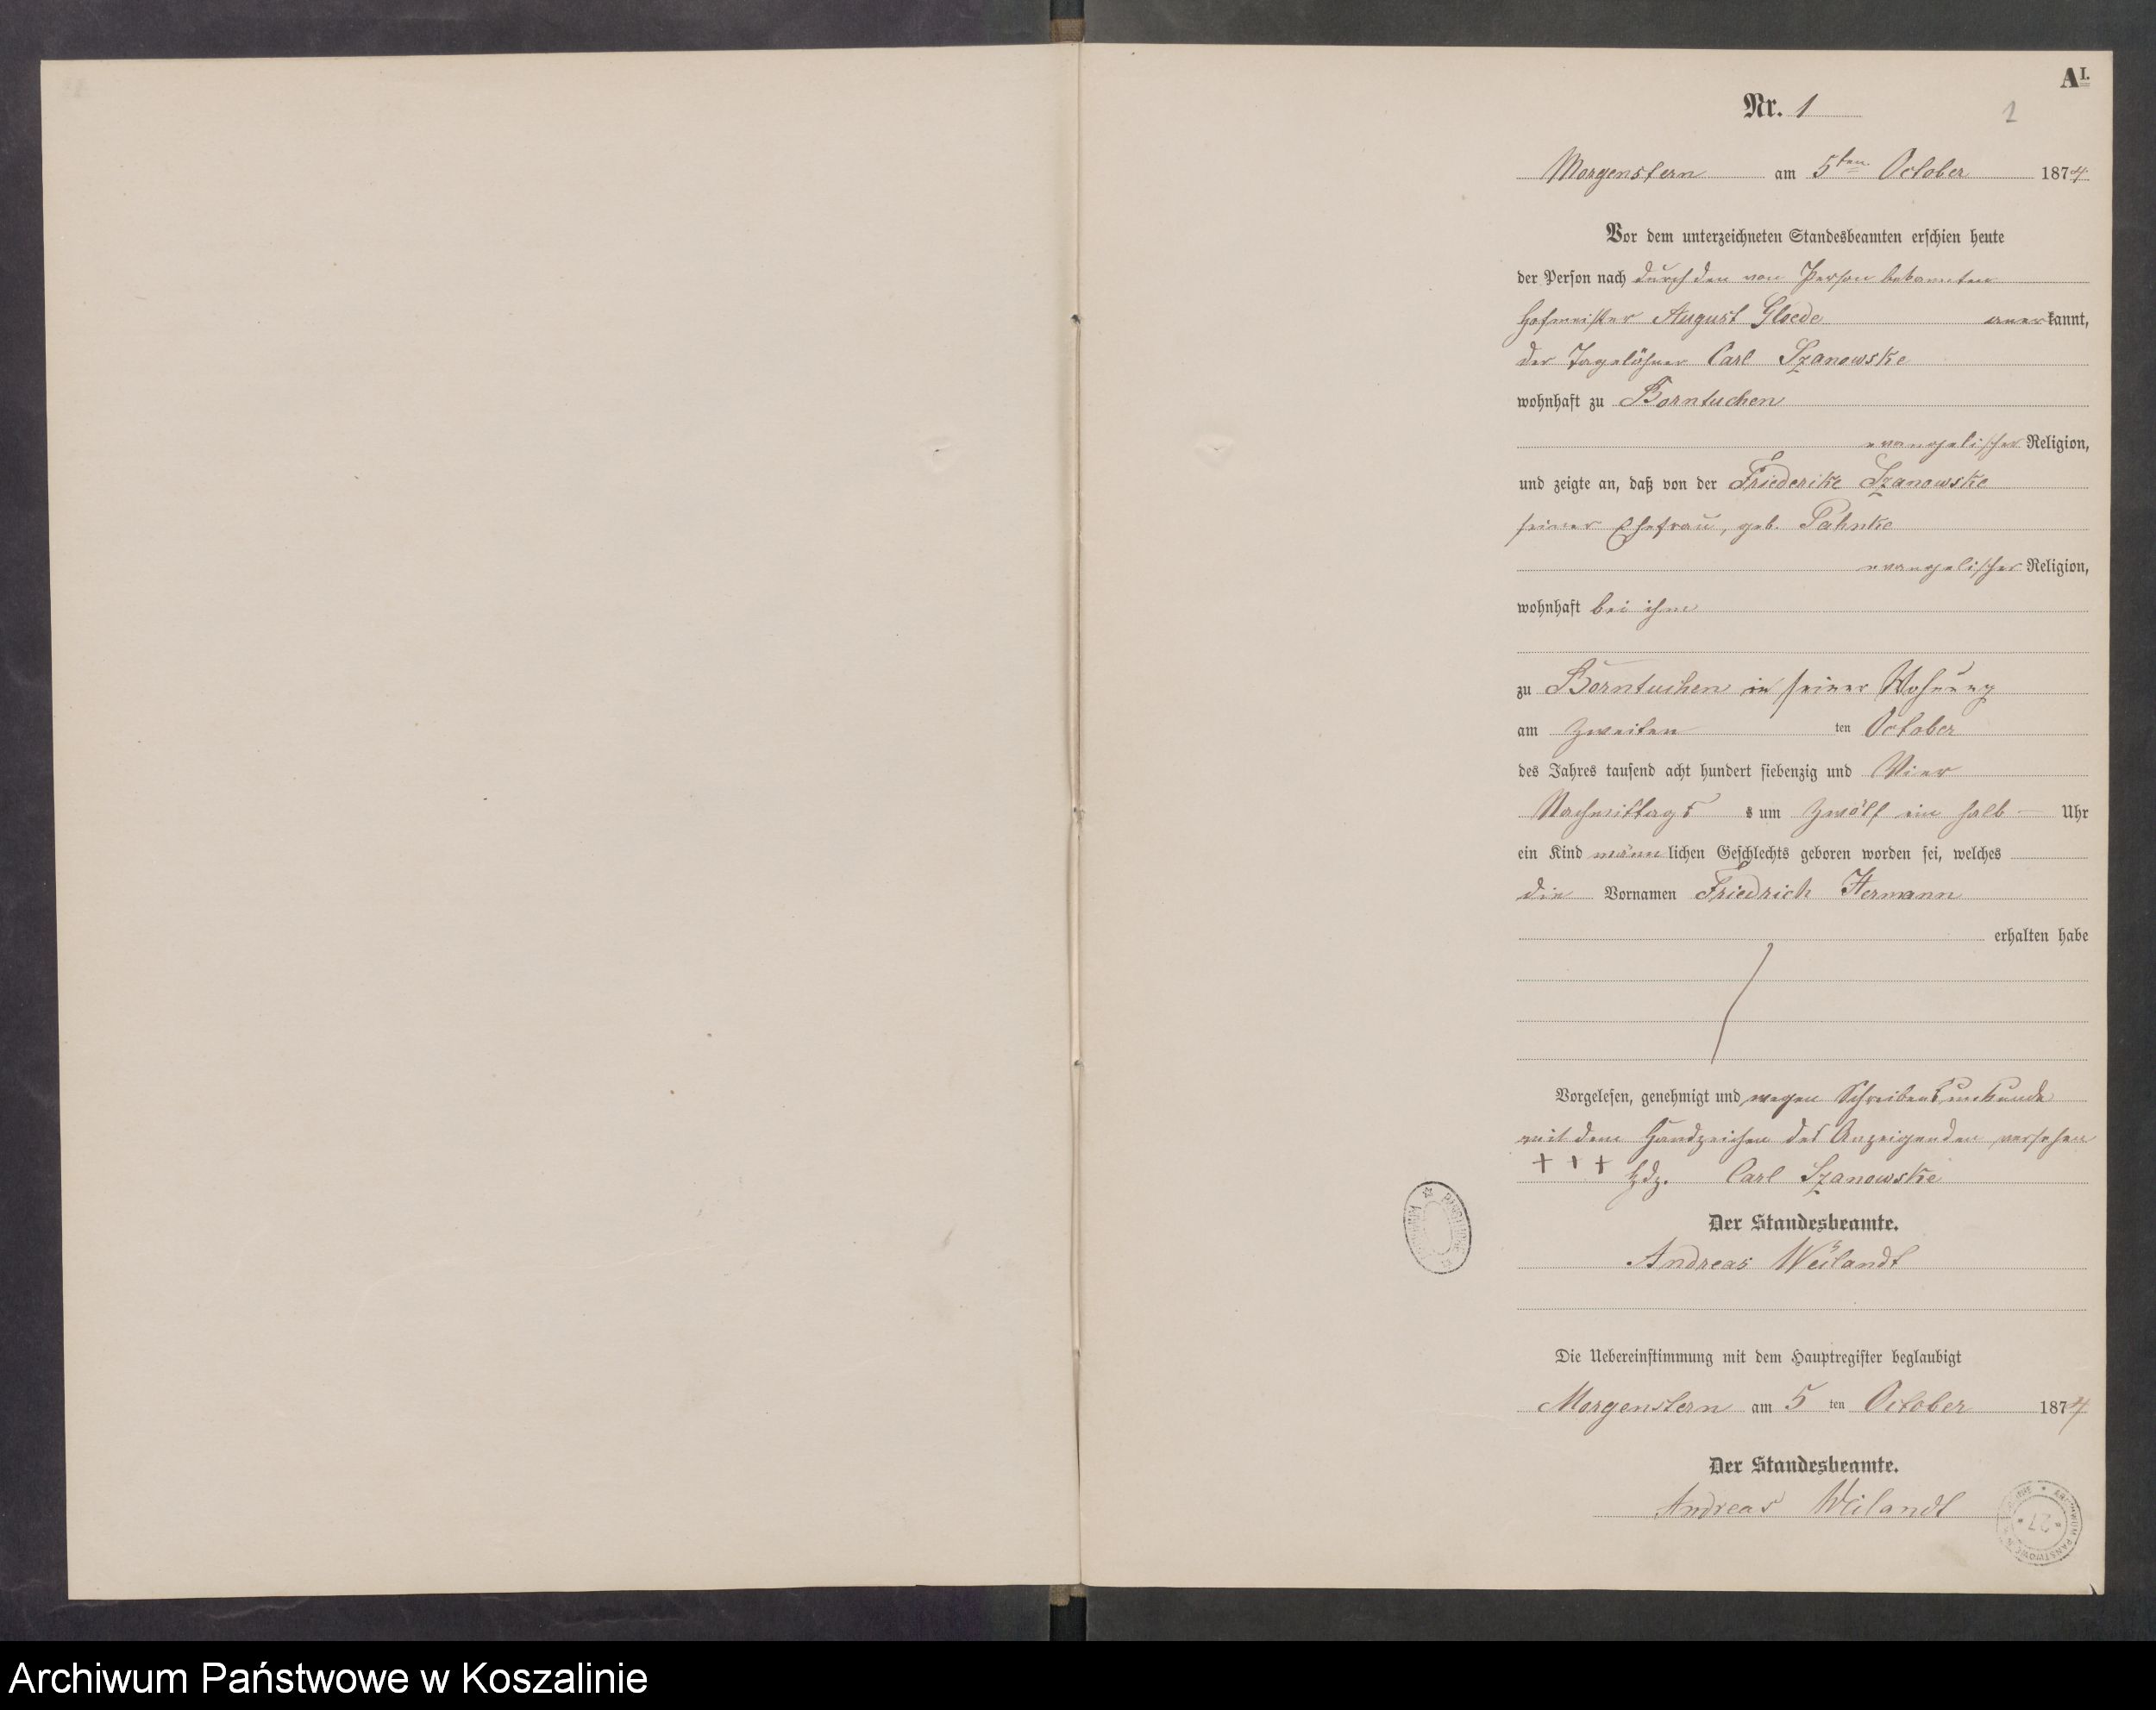 A I.
Nr. 1
2
Morgenstern am 5ten October 1874
Vor dem unterzeichneten Standesbeamten erschien heute
der Person nach durch den von Person bekannten
Hofmeister August Gloede anerkannt,
der Tagelöhner Carl Szanowske
wohnhaft zu Borntuchen
evangelischer Religion,
und zeigte an, daß von der Friederike Szanowske
seiner Ehefrau, geb. Pahnke
evangelischer Religion,
wohnhaft bei ihm
zu Borntuchen in seiner Wohnung
am zweiten ten October
des Jahres tausend acht hundert siebenzig und Vier
Nachmittags s um zwölf ein halb — Uhr
ein Kind männlichen Geschlechts geboren worden sei, welches
die Vornamen Friedrich Hermann
erhalten habe
Vorgelesen, genehmigt und wegen Schreibensunkunde
mit dem Handzeichen des Anzeigenden versehen
+ + + Hdz. Carl Szanowske
Der Standesbeamte.
Andreas Weilandt
Die Uebereinstimmung mit dem Hauptregister beglaubigt
Morgenstern am 5 ten October 1874
Der Standesbeamte.
Andreas Weilandt
ARCHIWUM PAŃSTWOWE
27
Archiwum Państwowe w Koszalinie